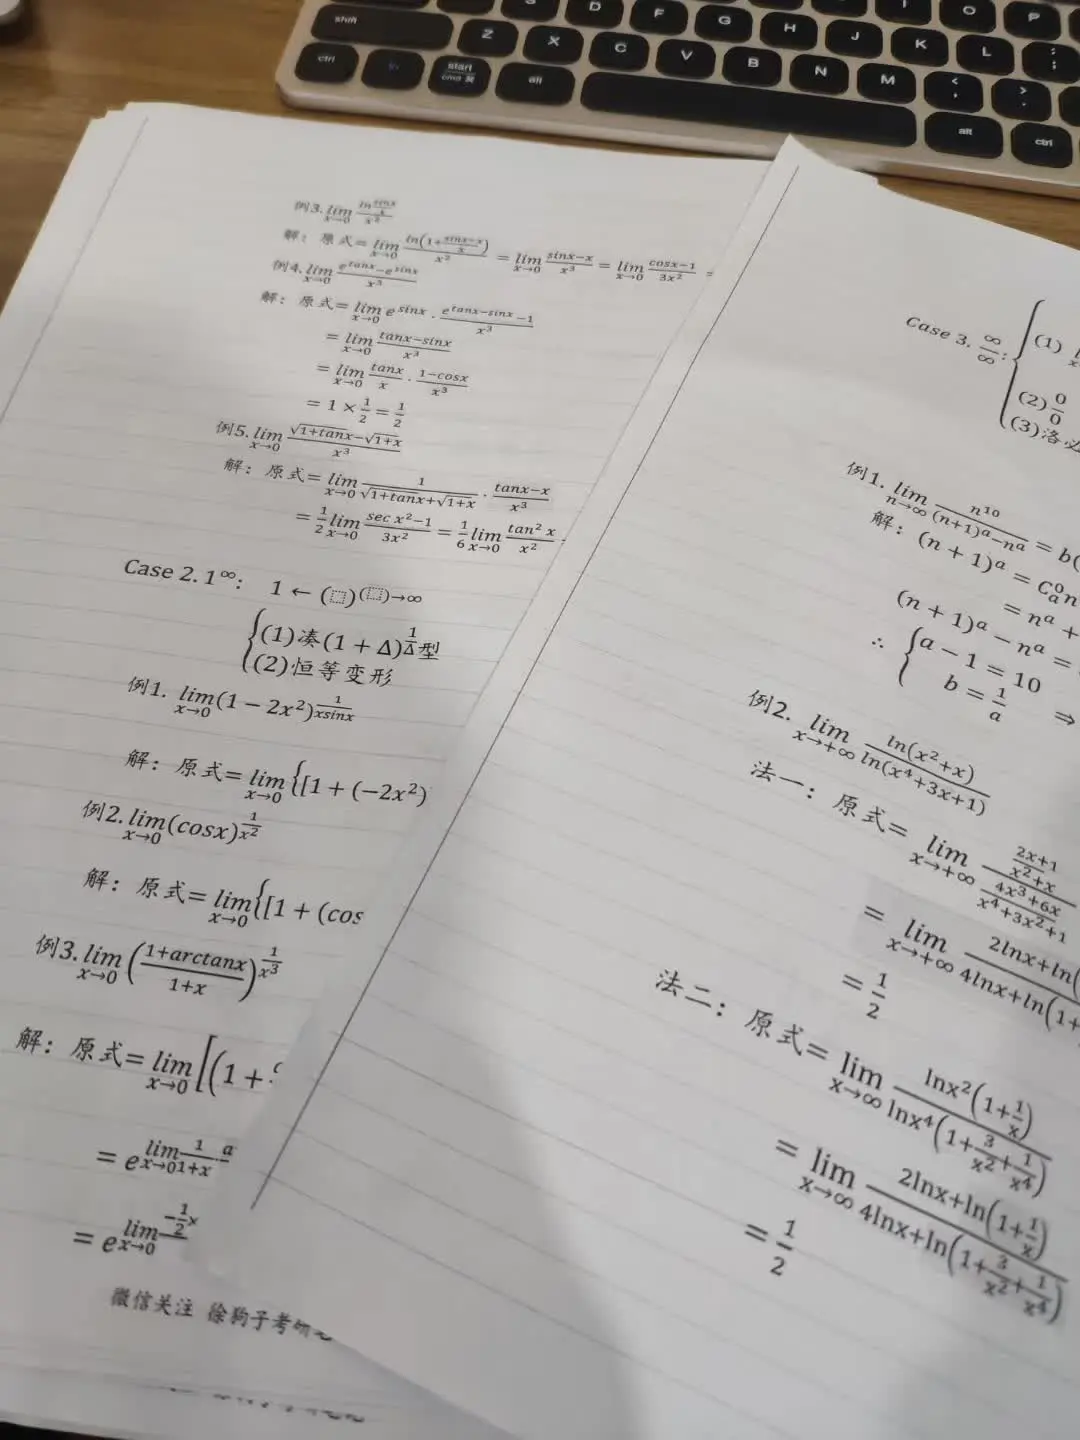 shift Z X C V B N M < >
ctrl fn start cmd alt alt ctrl
D F G H J K L
O P
例3. lim x→0 ln(sinx/x)/x²
解：原式= lim x→0 ln(1+(sinx−x)/x)/x² = lim x→0 (sinx−x)/x³ = lim x→0 (cosx−1)/3x² =
例4. lim x→0 (e^tanx−e^sinx)/x³
解：原式= lim x→0 e^sinx · (e^(tanx−sinx)−1)/x³
= lim x→0 (tanx−sinx)/x³
= lim x→0 tanx/x · (1−cosx)/x³
= 1 × 1/2 = 1/2
例5. lim x→0 (√(1+tanx)−√(1+x))/x³
解：原式= lim x→0 1/(√(1+tanx)+√(1+x)) · (tanx−x)/x³
= 1/2 lim x→0 (sec x²−1)/3x² = 1/6 lim x→0 tan² x/x²
Case 2. 1^∞: 1 ← (□)^(□)→∞
(1)凑(1 + Δ)^(1/Δ)型
(2)恒等变形
例1. lim x→0 (1 − 2x²)^(1/xsinx)
解：原式= lim x→0 {[1 + (−2x²)
例2. lim x→0 (cosx)^(1/x²)
解：原式= lim x→0 {[1 + (cos
例3. lim x→0 ((1+arctanx)/(1+x))^(1/x³)
解：原式= lim x→0 [(1 +
= e^(lim x→0 1/(1+x)
= e^(lim x→0 −1/2 x
微信关注 徐狗子考研
Case 3. ∞/∞:
(1)
(2) 0/0
(3)洛必
例1. lim n→∞ n^10/((n+1)^a−n^a) = b(
解：(n + 1)^a = C_a^0 n
= n^a +
(n + 1)^a − n^a =
∴ {a − 1 = 10
b = 1/a ⇒
例2. lim x→+∞ ln(x²+x)/ln(x⁴+3x+1)
法一：原式= lim x→+∞ ((2x+1)/(x²+x))/((4x³+6x)/(x⁴+3x²+1))
= lim x→+∞ (2lnx+ln()/(4lnx+ln(1+
= 1/2
法二：原式= lim x→∞ lnx²(1+1/x)/lnx⁴(1+3/x²+1/x⁴)
= lim x→∞ (2lnx+ln(1+1/x))/(4lnx+ln(1+3/x²+1/x⁴))
= 1/2